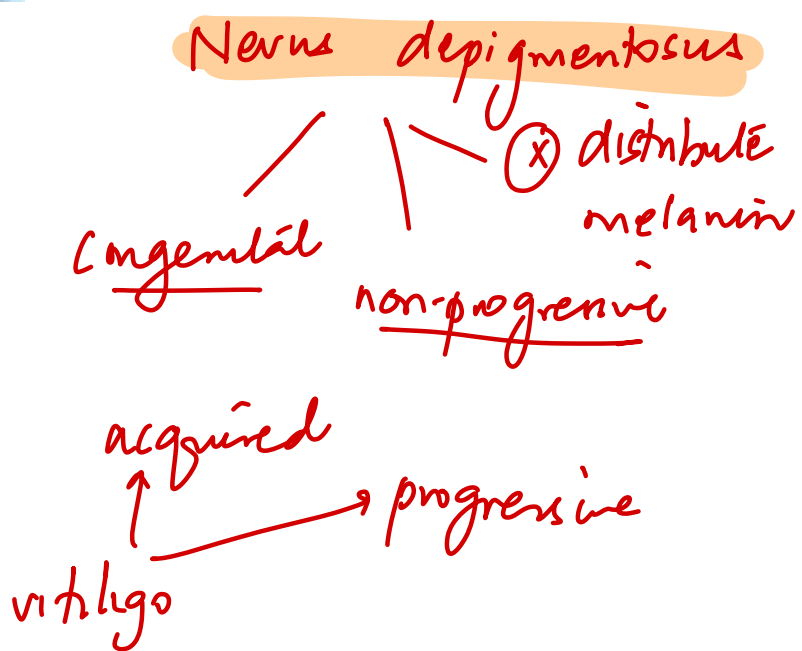 Nevus depigmentosus
congenital
non-progressive
ⓧ distribute
melanin
acquired
progressive
vitiligo